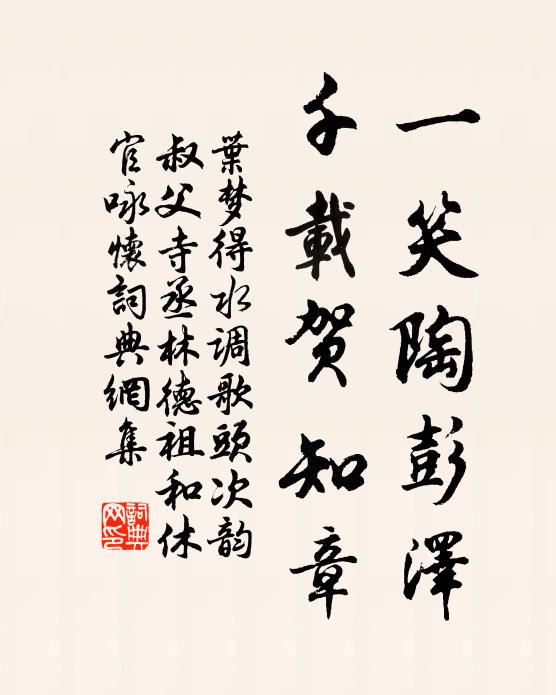 一笑陶彭澤
千載贺知章
葉梦得水调歌頭次韵
叔父寺丞林德祖和休
官咏懷詞典網集
詞典
网印